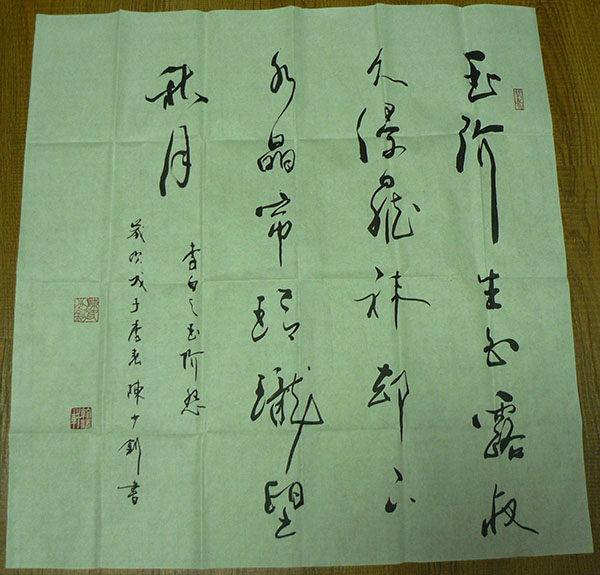 玉阶生白露夜
久侵羅袜却下
水晶帘玲瓏望
秋月
李白之玉阶怨
歲次戊子季春陳少釗書